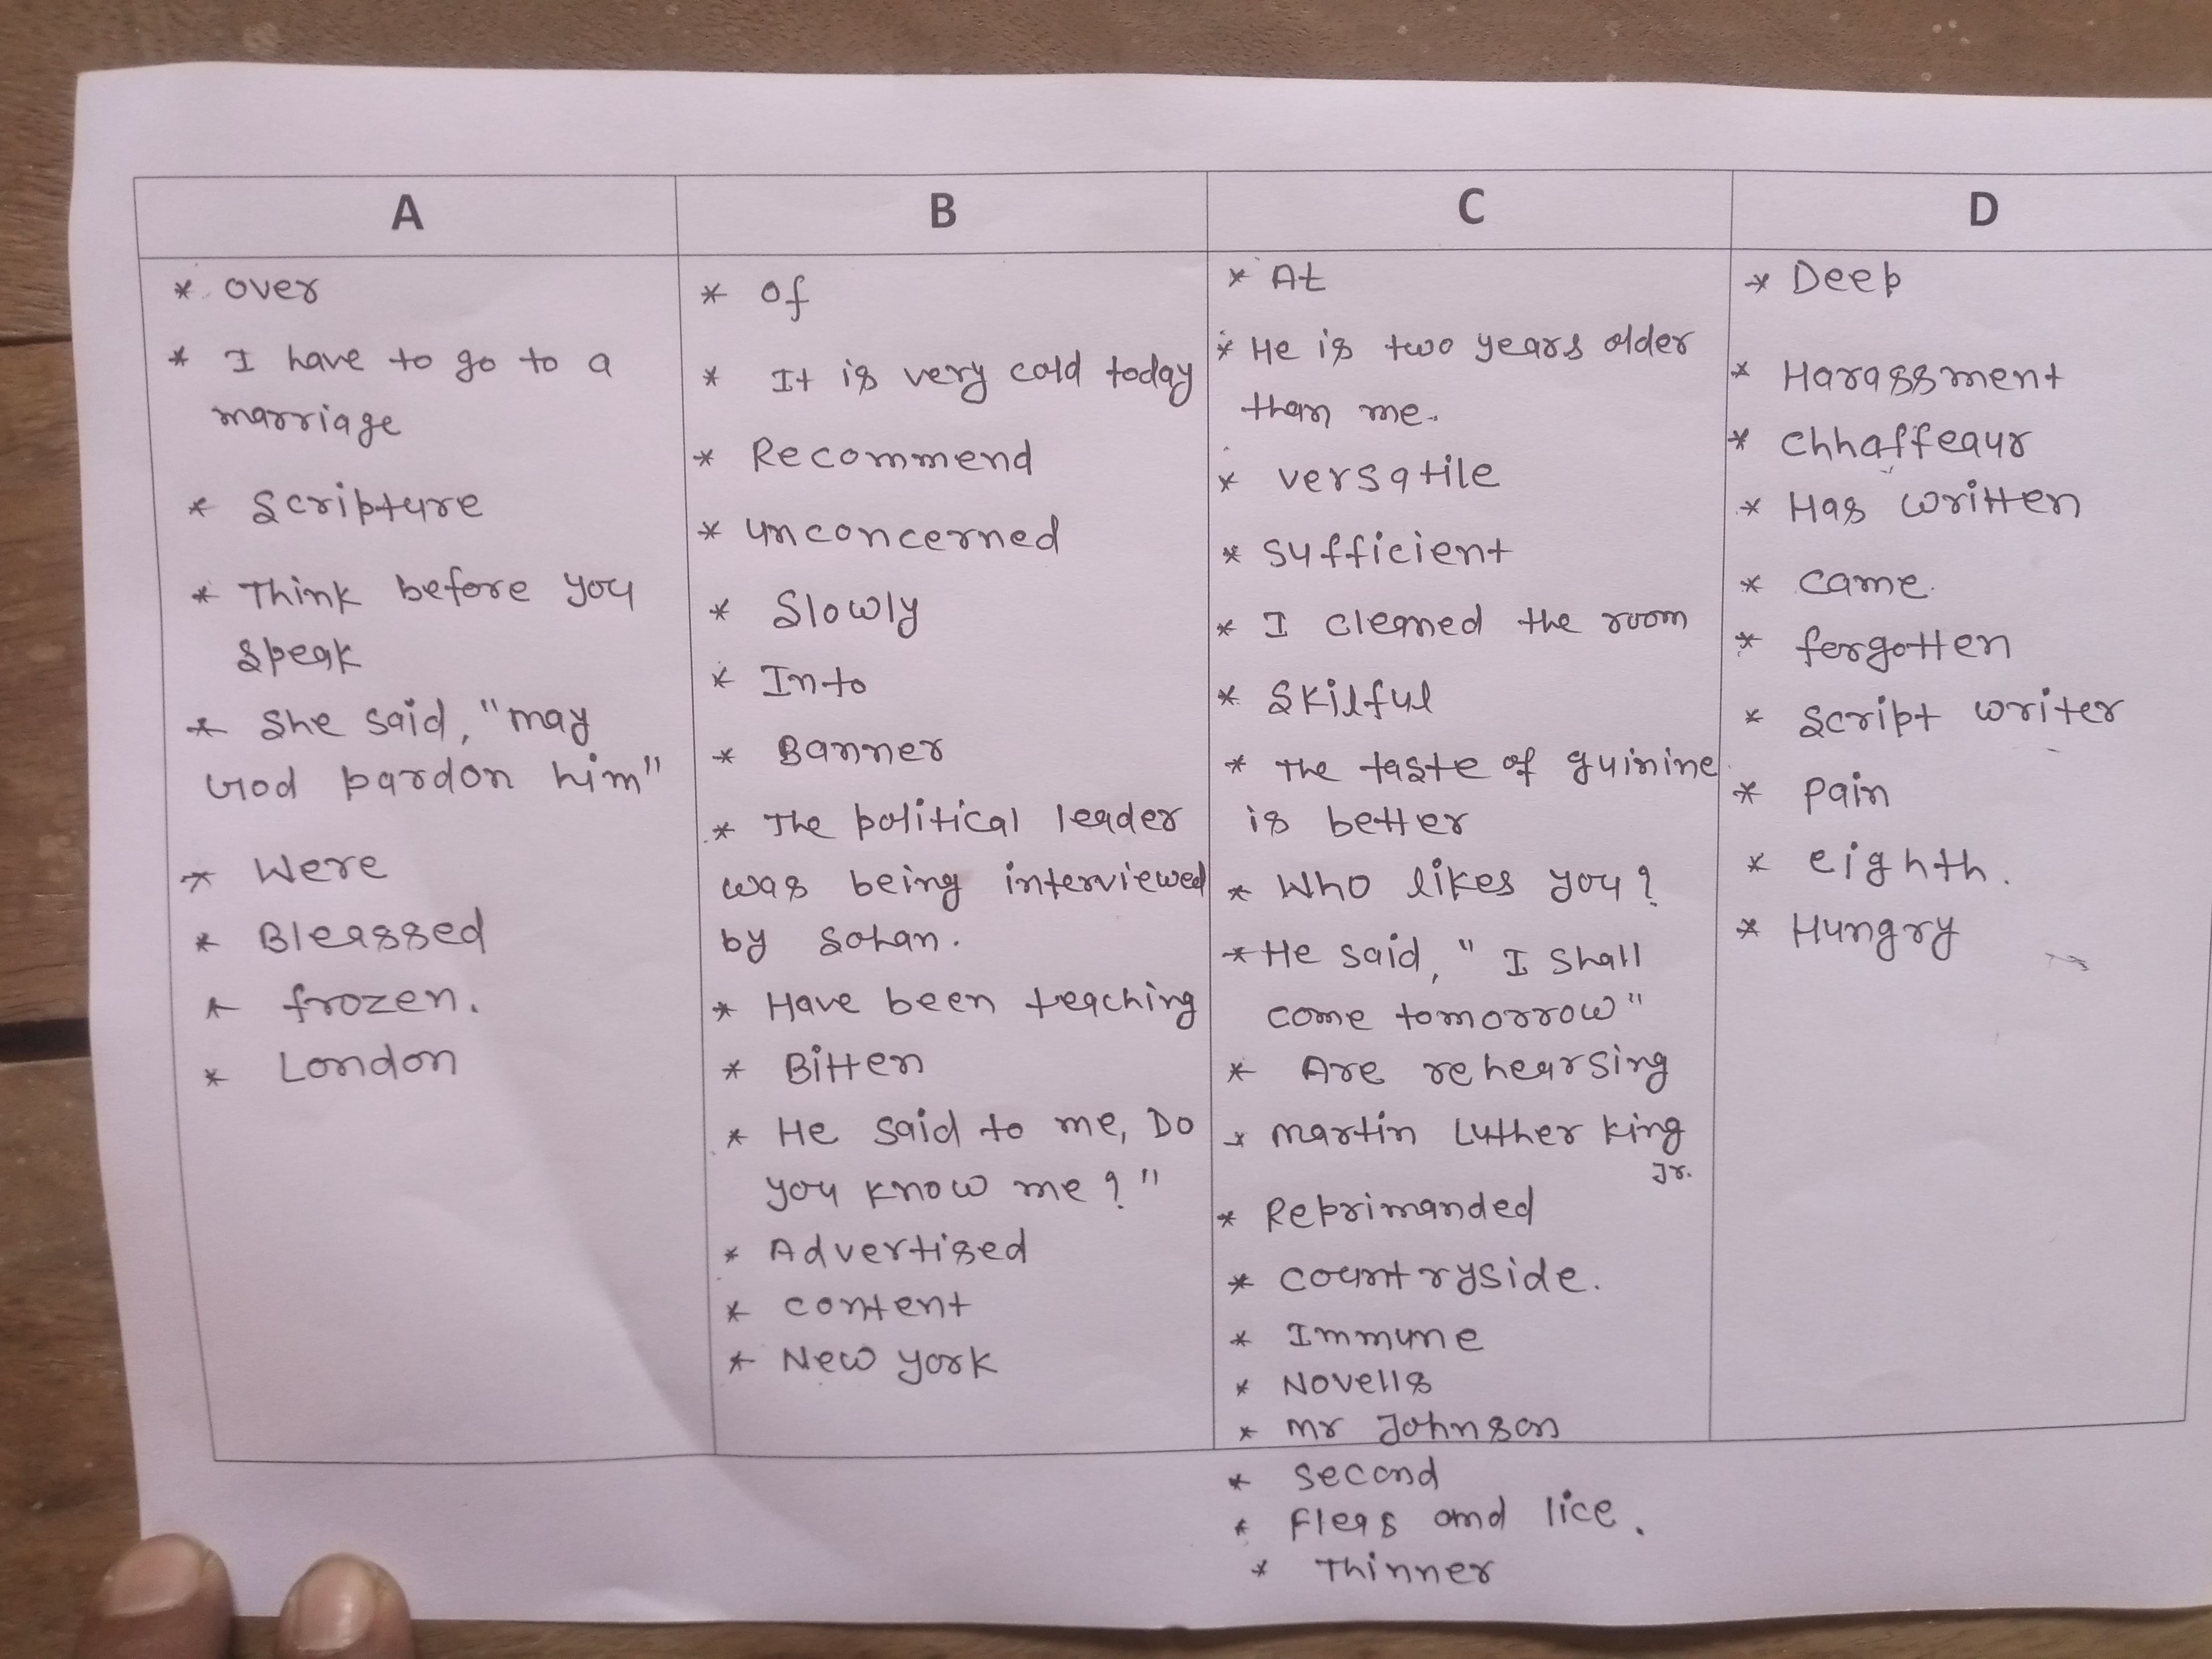 A
* over
* I have to go to a
marriage
* Scripture
* Think before you
speak
* She said, "may
God pardon him"
* Were
* Bleassed
* frozen.
* London
B
* Of
* It is very cold today
* Recommend
* unconcerned
* Slowly
* Into
* Banner
* The political leader
was being interviewed
by Sohan.
* Have been teaching
* Bitten
* He said to me, Do
you know me ? "
* Advertised
* content
* New york
C
* At
* He is two years older
than me.
* versatile
* Sufficient
* I cleaned the room
* Skilful
* The taste of quinine
is better
* Who likes you ?
* He said, " I shall
come tomorrow"
* Are rehearsing
* martin Luther king
Jr.
* Reprimanded
* countryside.
* Immune
* Novells
* mr Johnson
* second
* Fleas and lice.
* Thinner
D
* Deep
* Harassment
* chhaffeaur
* Has written
* came.
* fergotten
* script writer
* pain
* eighth.
* Hungry